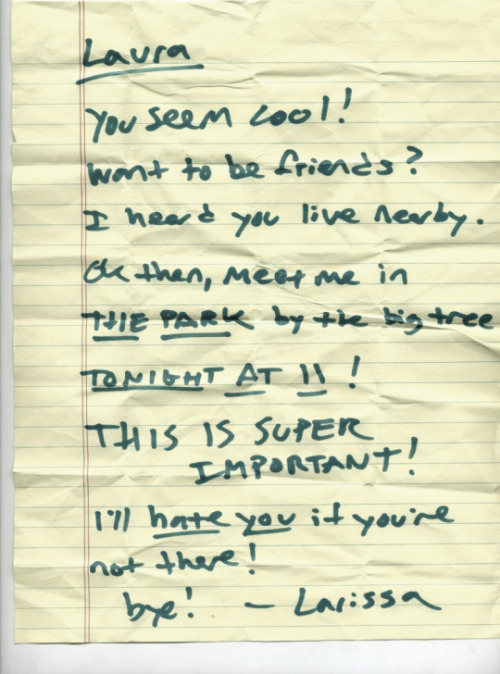 Laura
You seem cool!
Want to be friends?
I heard you live nearby.
Ok then, meet me in
THE PARK by the big tree
TONIGHT AT 11!
THIS IS SUPER
IMPORTANT!
I'll hate you if you're
not there!
bye! - Larissa